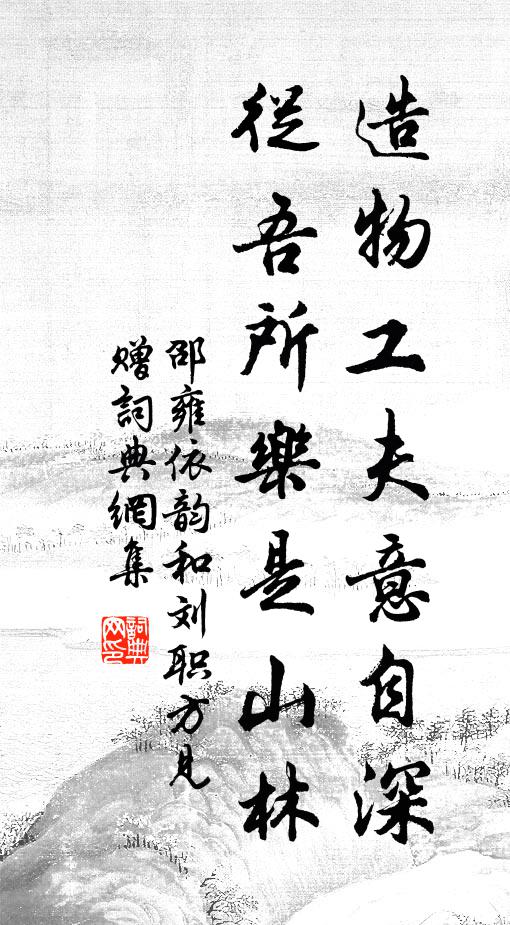 造物工夫意自深
從吾所樂是山林
邵雍依韵和刘职方見
赠詞典網集
詞典
网印